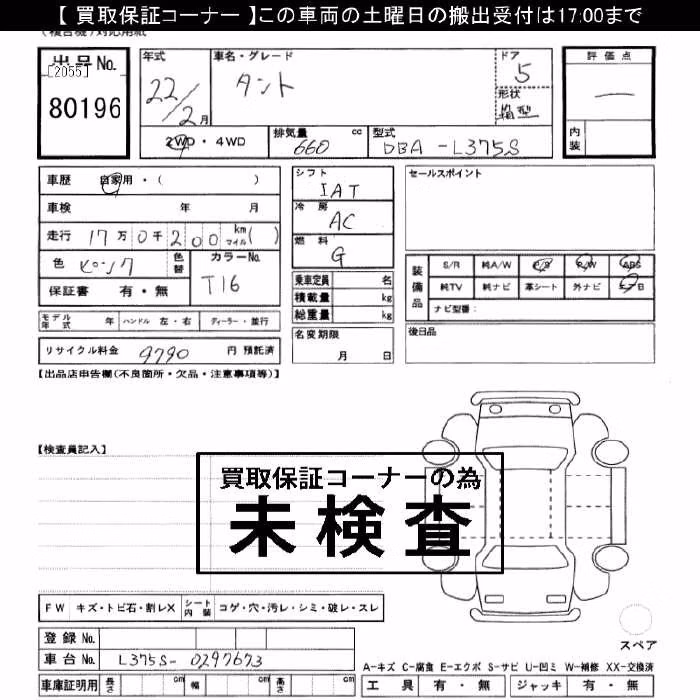 【 買取保証コーナー 】この車両の土曜日の搬出受付は17:00まで
(複合機)対応用紙
出品No.
[2055]
80196
年式
22/2月
車名・グレード
タント
ドア
5
形状
箱型
評価点
—
内装
2WD・4WD
排気量
660
cc
型式
DBA-L375S
車歴 自家用・( )
車検 年 月
走行 17万0千200 km マイル( )
色 ピンク
色替
カラーNo.
T16
保証書 有・無
シフト
IAT
冷房
AC
燃料
G
乗車定員 名
積載量 kg
総重量 kg
セールスポイント
装備品
S/R 純A/W P/S P/W ABS
純TV 純ナビ 革シート 外ナビ エアB
ナビ型番:
モデル年式 年 ハンドル 左・右 ディーラー・並行
リサイクル料金 9790 円 預託済
名変期限
月 日
後日品
【出品店申告欄(不良箇所・欠品・注意事項等)】
【検査員記入】
買取保証コーナーの為
未検査
FW キズ・トビ石・割レX シート内装 コゲ・穴・汚レ・シミ・破レ・スレ
登録No.
車台No. L375S-0297673
車庫証明用 長さ cm 幅 cm 高さ cm
スペア
A-キズ C-腐食 E-エクボ S-サビ U-凹ミ W-補修 XX-交換済
工具 有・無 ジャッキ 有・無